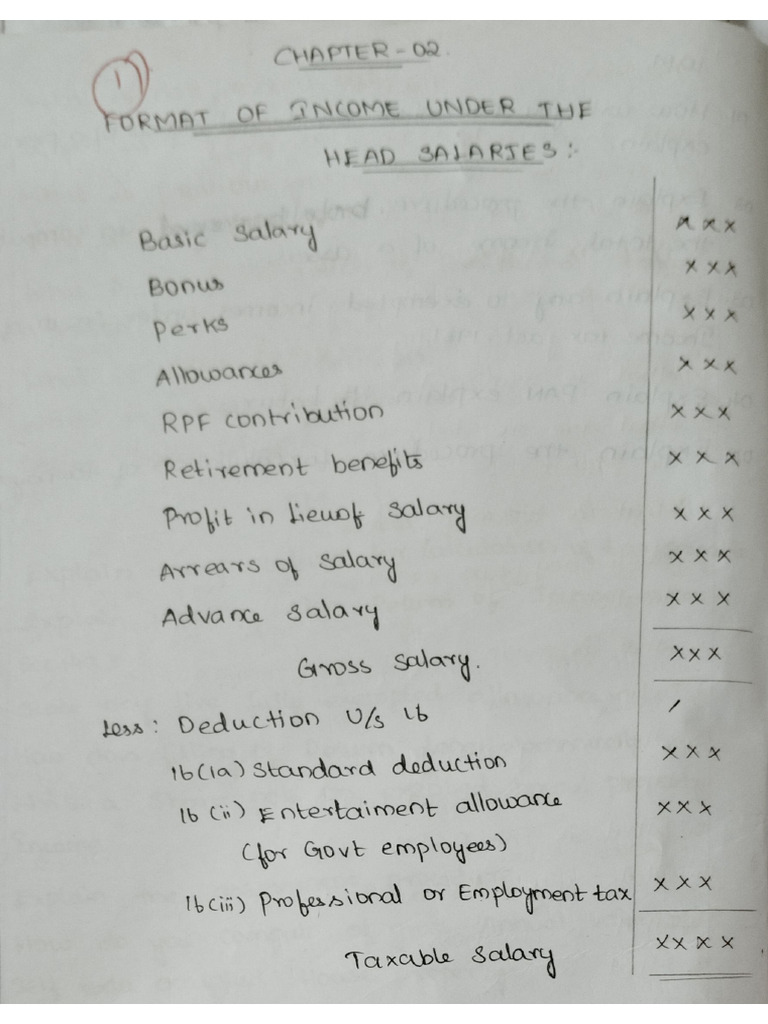 CHAPTER-02.
1
FORMAT OF INCOME UNDER THE
HEAD SALARIES:-
Basic Salary xxx
Bonus xxx
Perks xxx
Allowances xxx
RPF contribution xxx
Retirement benefits xxx
Profit in Lieuof Salary xxx
Arrears of Salary xxx
Advance Salary xxx
Gross Salary. xxx
Less: Deduction U/s 16
16(1a) Standard deduction xxx
16 (ii) Entertaiment allowance xxx
(for Govt employees)
16(iii) Professional or Employment tax xxx
Taxable Salary xxxx